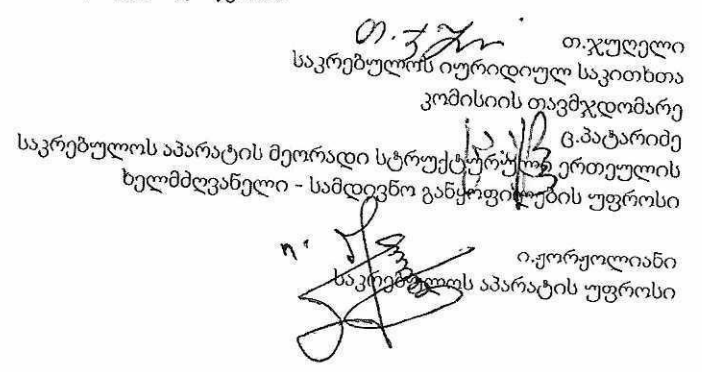 თ.ჯუღელი
საკრებულოს იურიდიულ საკითხთა
კომისიის თავმჯდომარე
ც.პატარიძე
საკრებულოს აპარატის მეორადი სტრუქტურული ერთეულის
ხელმძღვანელი - სამდივნო განყოფილების უფროსი
ი.ჟორჟოლიანი
საკრებულოს აპარატის უფროსი